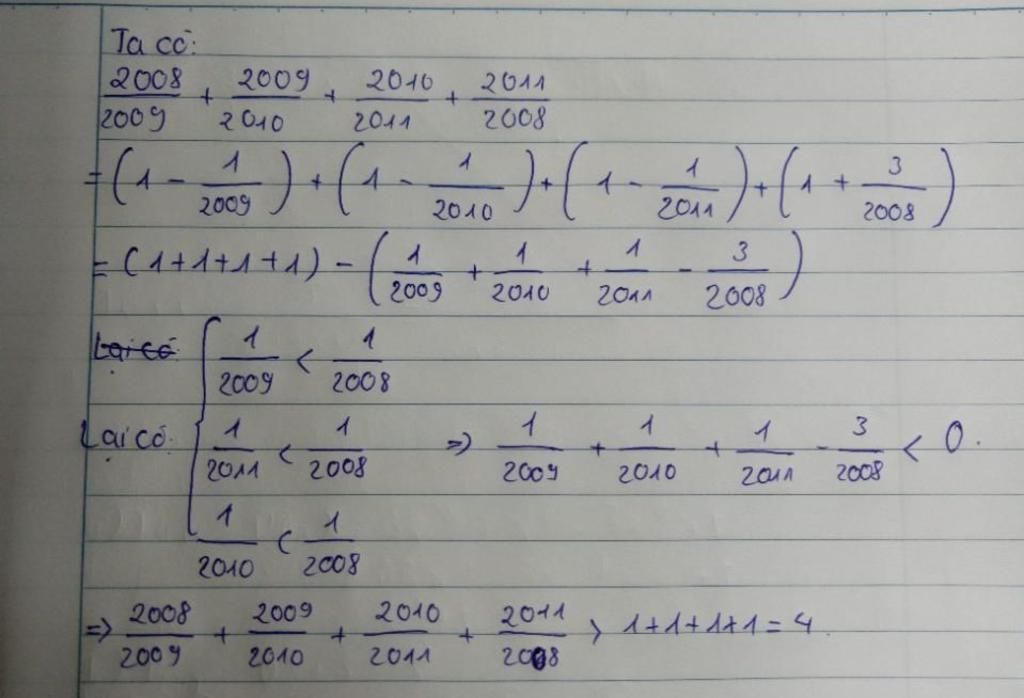 Ta có:
2008/2009 + 2009/2010 + 2010/2011 + 2011/2008
= (1 - 1/2009) + (1 - 1/2010) + (1 - 1/2011) + (1 + 3/2008)
= (1+1+1+1) - (1/2009 + 1/2010 + 1/2011 - 3/2008)
Lại có:
1/2009 < 1/2008
Lại có: 1/2011 < 1/2008 => 1/2009 + 1/2010 + 1/2011 - 3/2008 < 0.
1/2010 < 1/2008
=> 2008/2009 + 2009/2010 + 2010/2011 + 2011/2008 > 1+1+1+1 = 4.